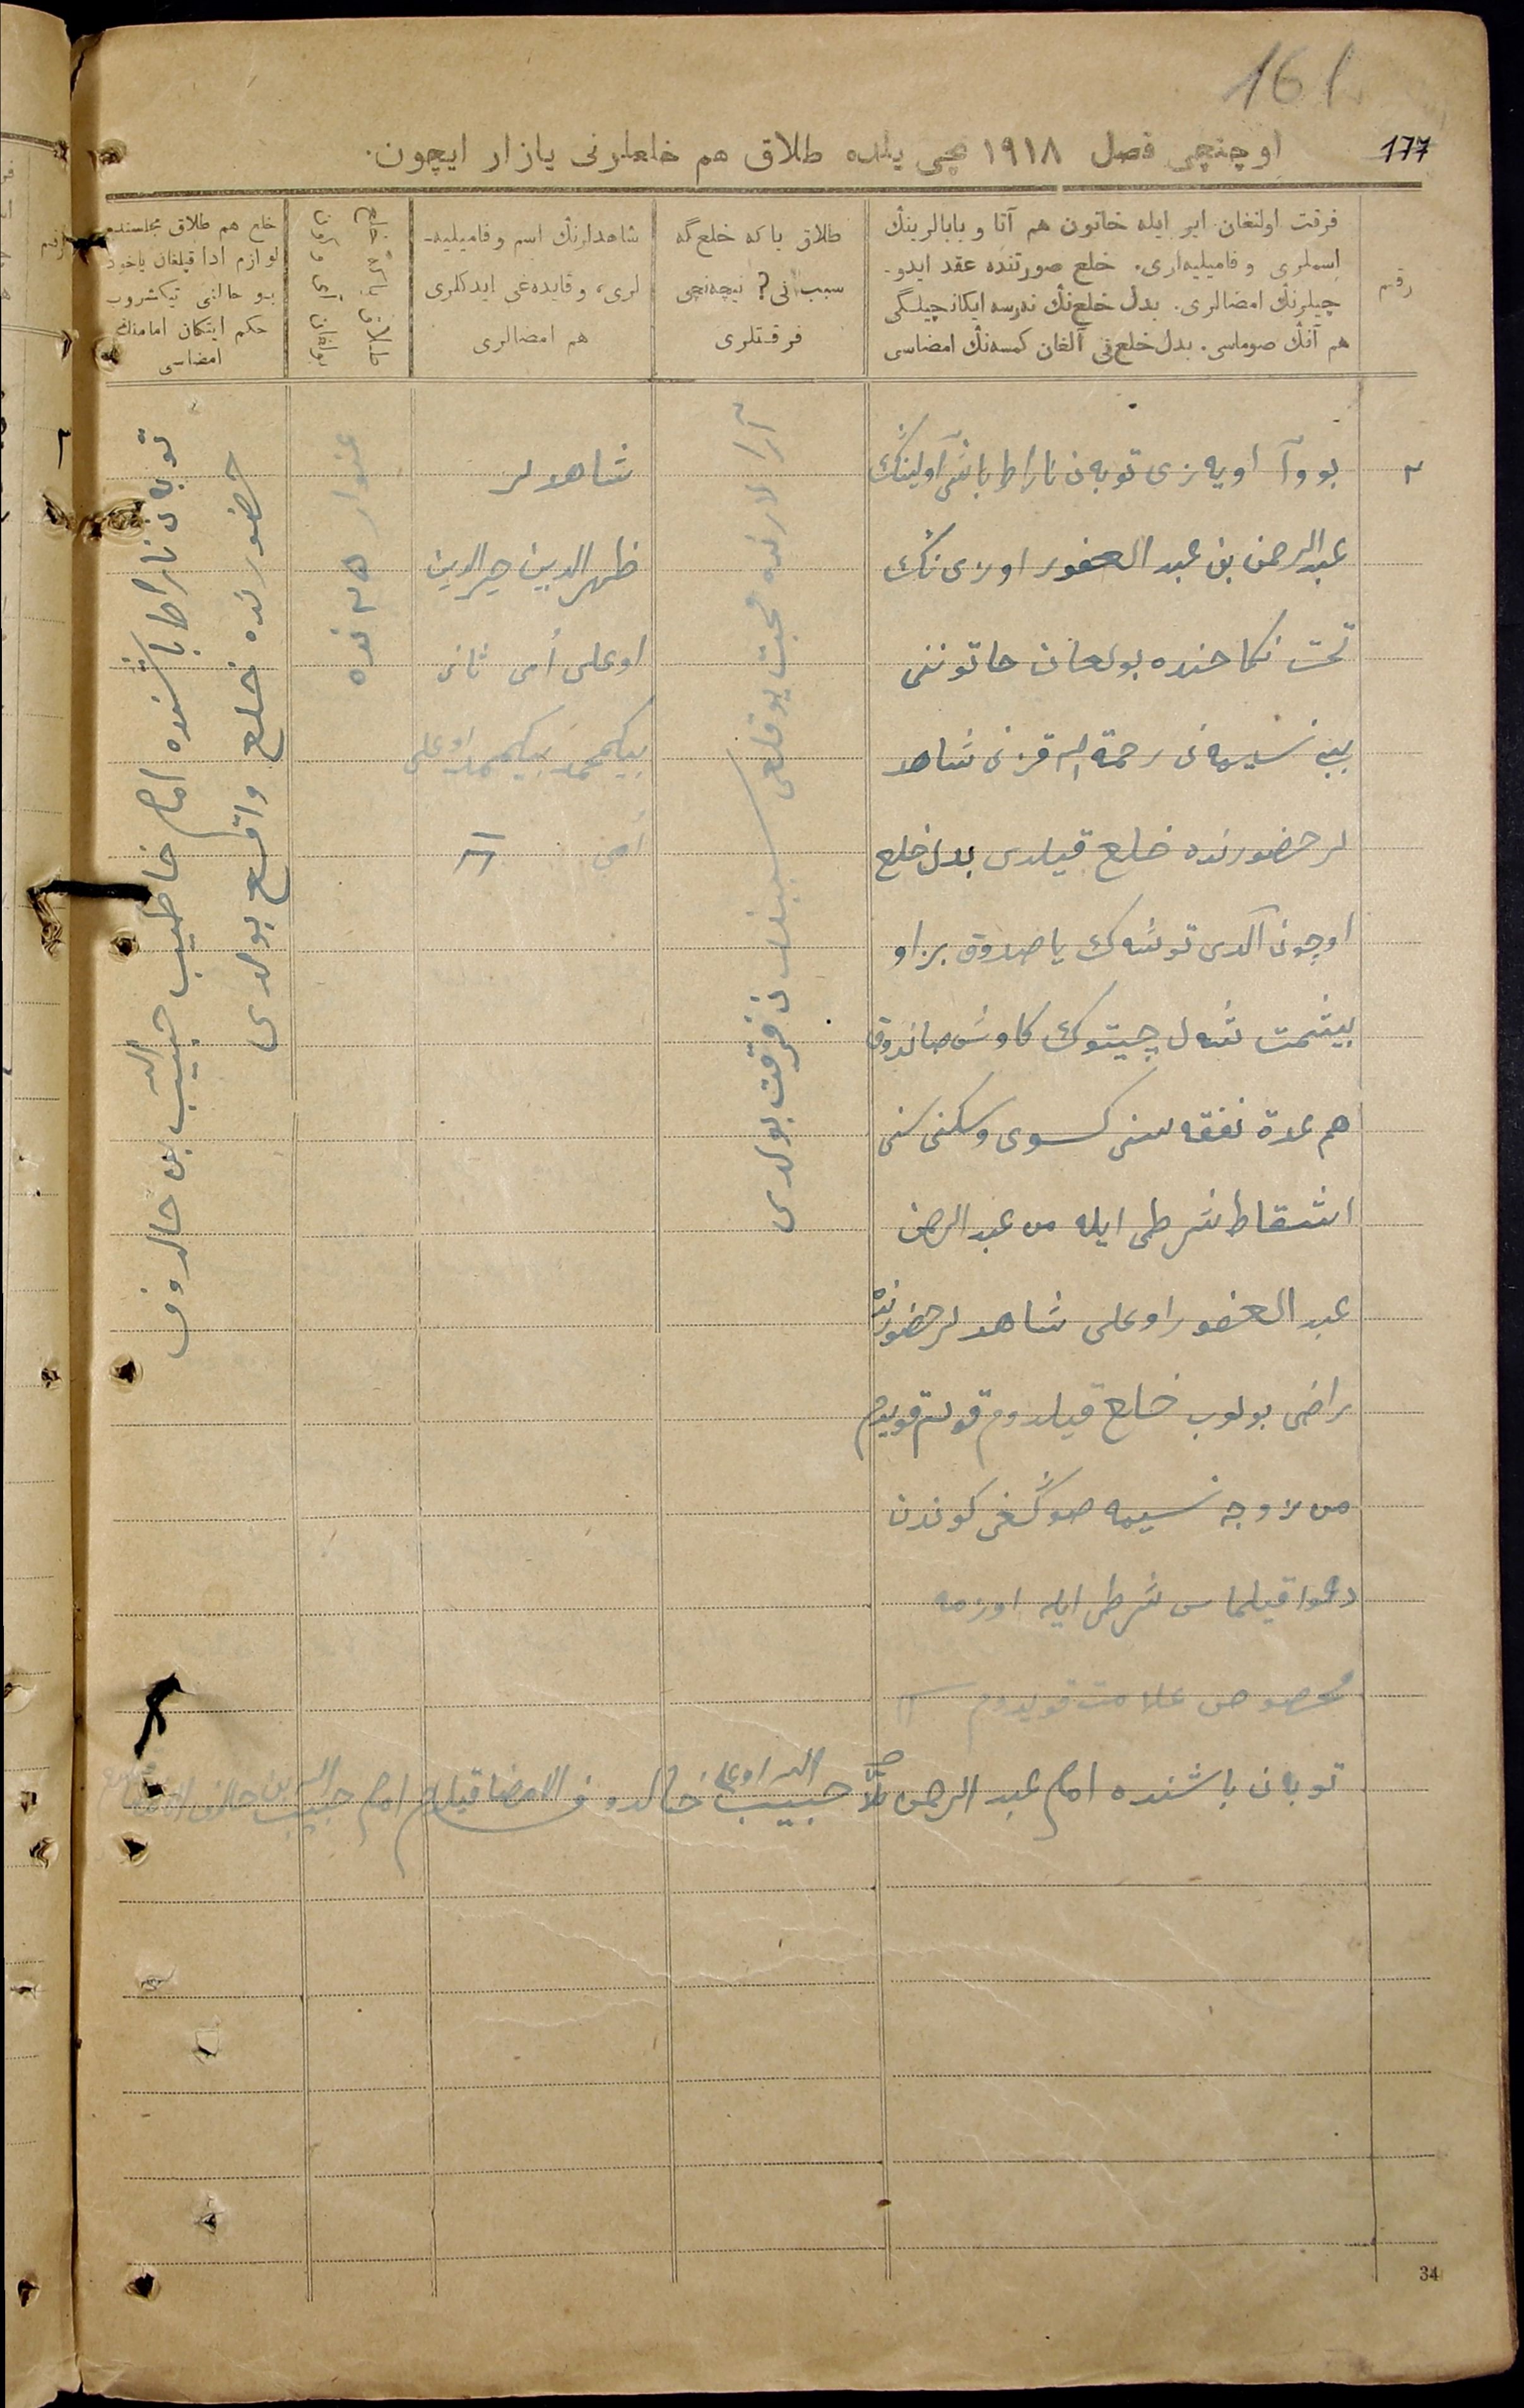 161
177
اوچنچی فصل ١٩١٨ نچی یلده طلاق هم خلعلرنی یازار ایچون.
رقم
فرقت اولنغان ایر ایله خاتون هم آتا و بابالرینڭ
اسملری و فامیلیه‌لری. خلع صورتنده عقد ایدو-
چیلرنڭ امضالری. بدل خلع‌نڭ نەرسه ایکانچیلگی
هم آنڭ صوماسی. بدل خلع‌نی آلغان کمسه‌نڭ امضاسی
طلاق یاکه خلع‌گه
سبب نی؟ نیچه‌نچی
فرقتلری
شاهدلرنڭ اسم و فامیلیه-
لری، و قایده‌غی ایدکلری
هم امضالری
طلاق یاکه خلع
بولغان آی و کون
خلع هم طلاق مجلسنده
لوازم ادا قیلغان یاخود
بو حالنی تیکشروب
حکم ایتکان امامنڭ
امضاسی
٢
بووآ اویەزی توبەن ناراط باشی آولینڭ
عبدالرحمن بن عبد الغفور اوزی نڭ
تحت نکاحنده بولغان خاتوننی
بیبی نسیمه نی رحمة الله قزنی شاهد
لر حضورنده خلع قیلدی بدل خلع
اوچون آلدی توشەک یاصدوق براو
بیشمت شەل چیتوک کاوش صاندوق
هم عدة نفقه سنی کسوی و سکنی سنی
اسقاط شرطی ایله من عبد الرحمن
عبد الغفور اوغلی شاهدلر حضورنده
راضی بولوب خلع قیلدوم قولم قویدم
من زوجه نسیمه صوڭغی کوندن
دعوا قیلماس شرطی ایله اوزمه
مخصوص علامت قویدوم
آرالارنده محبت یوقلغی سببندن فرقت بولدی
شاهدلر
ظهرالدین خیرالدین
اوغلی اُمی ثانی
بیکمحمد بیکمحمد اوغلی
اُمی
غنوار ٢٥ نده
توبەن ناراط باشنده امام خاطیب حبیب الله بن خالدوف
حضورنده خلع واقع بولدی
توبان باشنده امام عبد الرحمن ملا حبیب الله اوغلی خالدوف امضا قیلدم امام حبیب الله بن خالدوف
34